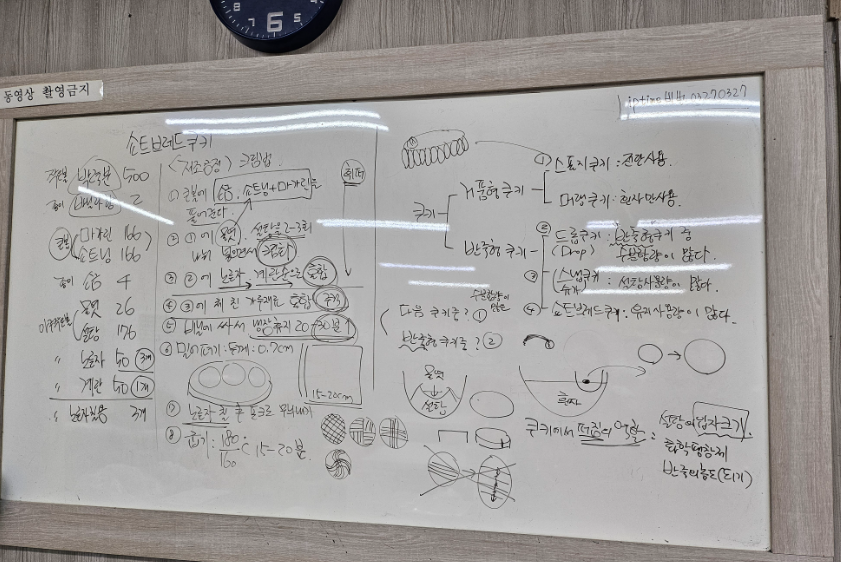 동영상 촬영금지
쇼트브레드쿠키
박력분 500
2
마가린 166
쇼트닝 166
소금 4
물엿 26
설탕 176
〃 노른자 50 3개
〃 계란 50 1개
〃 노른자 3개
<제조공정> 크림법
① 볼에 소금, 쇼트닝+마가린을
풀어준다
② ①에 물엿, 설탕을 2~3회
넣으면서 크림화
③ ②에 노른자 계란 순으로 혼합
④ ③에 체 친 가루재료 혼합
⑤ 비닐에 싸서 냉장휴지 20-30분↑
⑥ 밀어펴기: 두께: 0.7cm
15-20cm
⑦ 노른자 칠 후 포크로 무늬내기
⑧ 굽기: 180/160℃ 15-20분
휘퍼
쿠키
거품형 쿠키
① 스폰지쿠키: 전란사용.
머랭쿠키: 흰자만사용.
반죽형쿠키
② 드롭쿠키: 반죽형쿠키 중
(Drop) 수분함량이 많다.
③ 스냅쿠키: 설탕사용량이 많다.
슈가
④ 쇼트브레드쿠키: 유지사용량이 많다.
수분함량이
많은
다음 쿠키는? ①
반죽형쿠키는? ②
물엿
설탕
흰자
쿠키에서 퍼짐의 역할: 설탕의 입자크기.
화학팽창제
반죽의농도(되기)